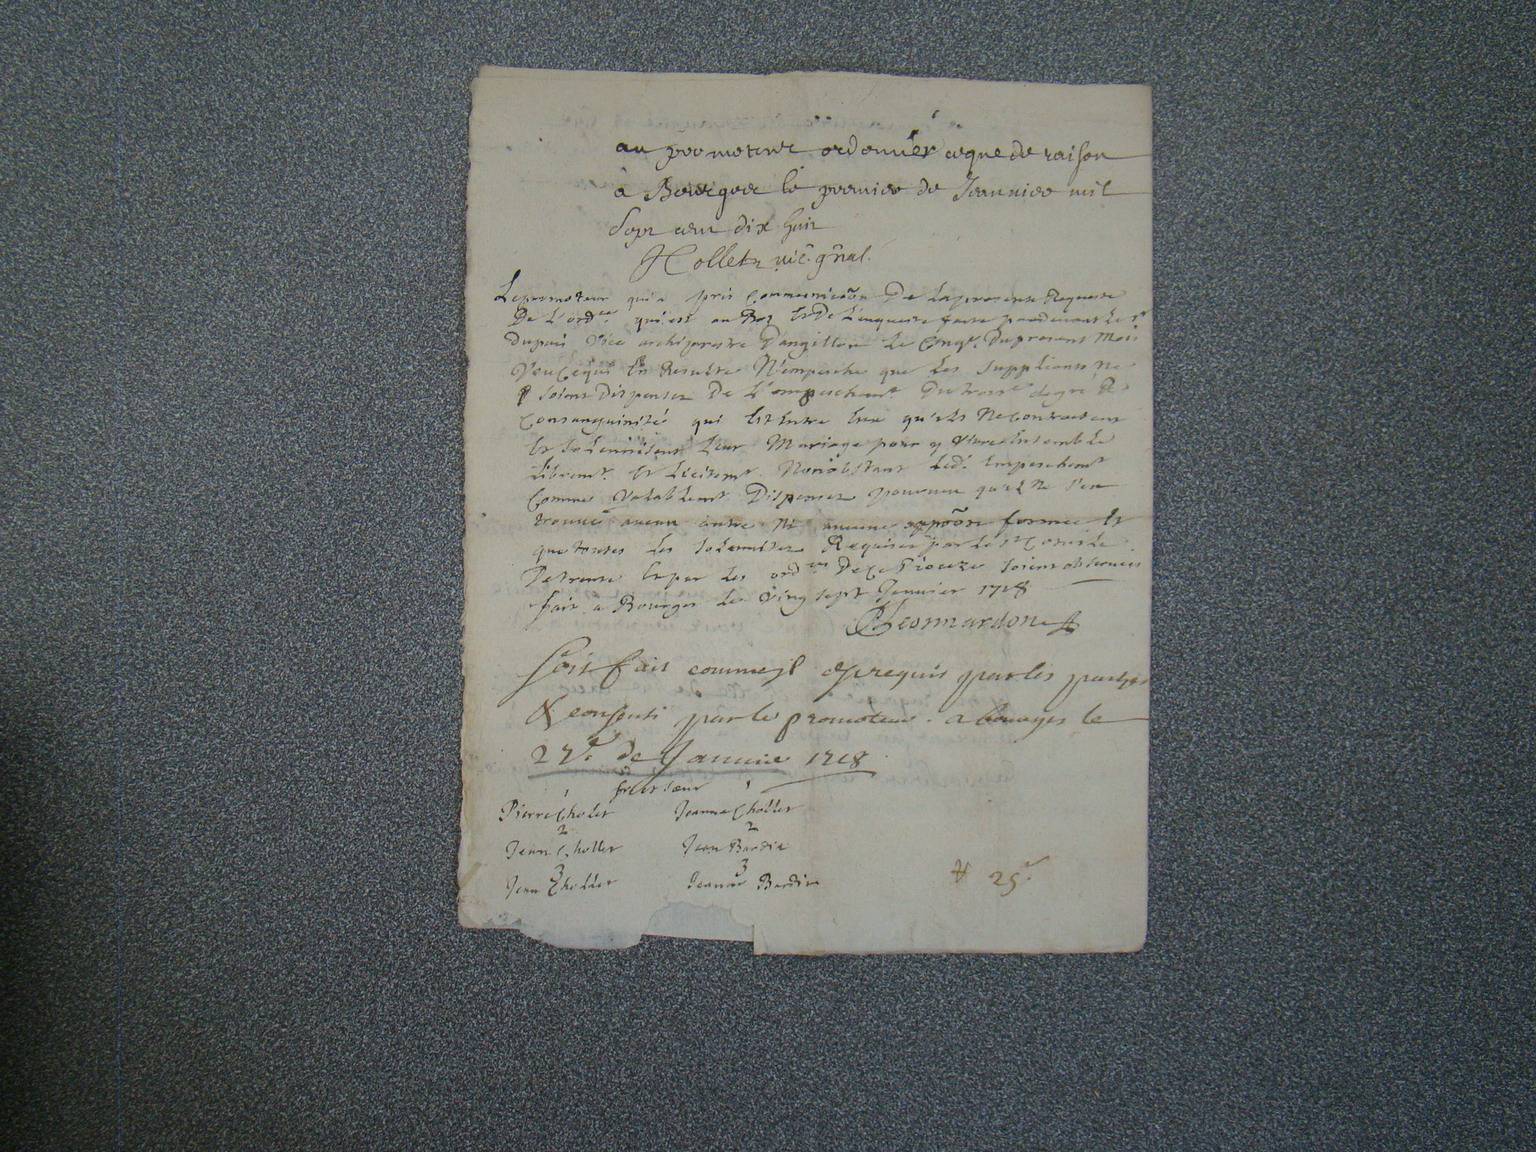 au promoteur ordonner ceque de raison
à Bourges le premier de Janvier mil
sept cent dix huit
Hollet vic. gñal.
Le promoteur qui a pris Communicãon De la presente Requeste
De L'ordce qui est au Bas Et De L'enqueste faite pardevant le sr
Dupuis Vice archiprestre Dangillon Le Cinqe. Du present Mois
Veu Cequi En Resulte N'empesche que Les Supplians ne
soient Dispensez De L'empeschemt. Du trois degré De
Consanguinité qui Est Entre Eux qu'ils Ne Contractent
Et Solennisent Leur Mariage pour y Vivre Ensemble
Libremt. Et Licitemt. Nonobstant Led. Empeschemt
Comme Valablemt Dispensez pourveu qu'il ne s'en
trouve aucun autre Ni aucune oppõon formée Et
que toutes Les Solemnitez Requises par Le st Concile
De trente Et par Les ordces De Ce Dioceze Soient observées
fait a Bourges Le Vingt sept Janvier 1718
Leonnardon
soit fait comme il est requis par les parties
& consenti par le promoteur. a bourges le
27e. de Janvier 1718
frere et soeur
1 1
Pierre Chollet Jeanne Chollet
2 2
Jean Chollet Jean Bardin
3 3
Jean Chollet Jeanne Bardin
25s.